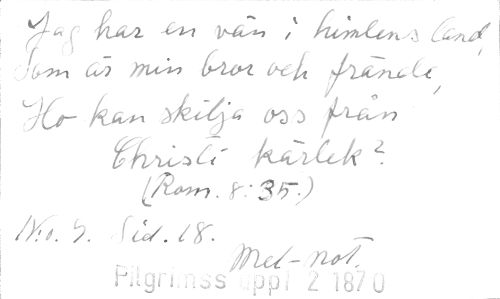 Jag har en vän i himlens land,
Som är min bror och frände,
Ho kan skilja oss från
Christi kärlek?
(Rom. 8:35.)
N:o. 7. Sid. 18.
Mel-not.
Pilgrimss uppl 2 1870